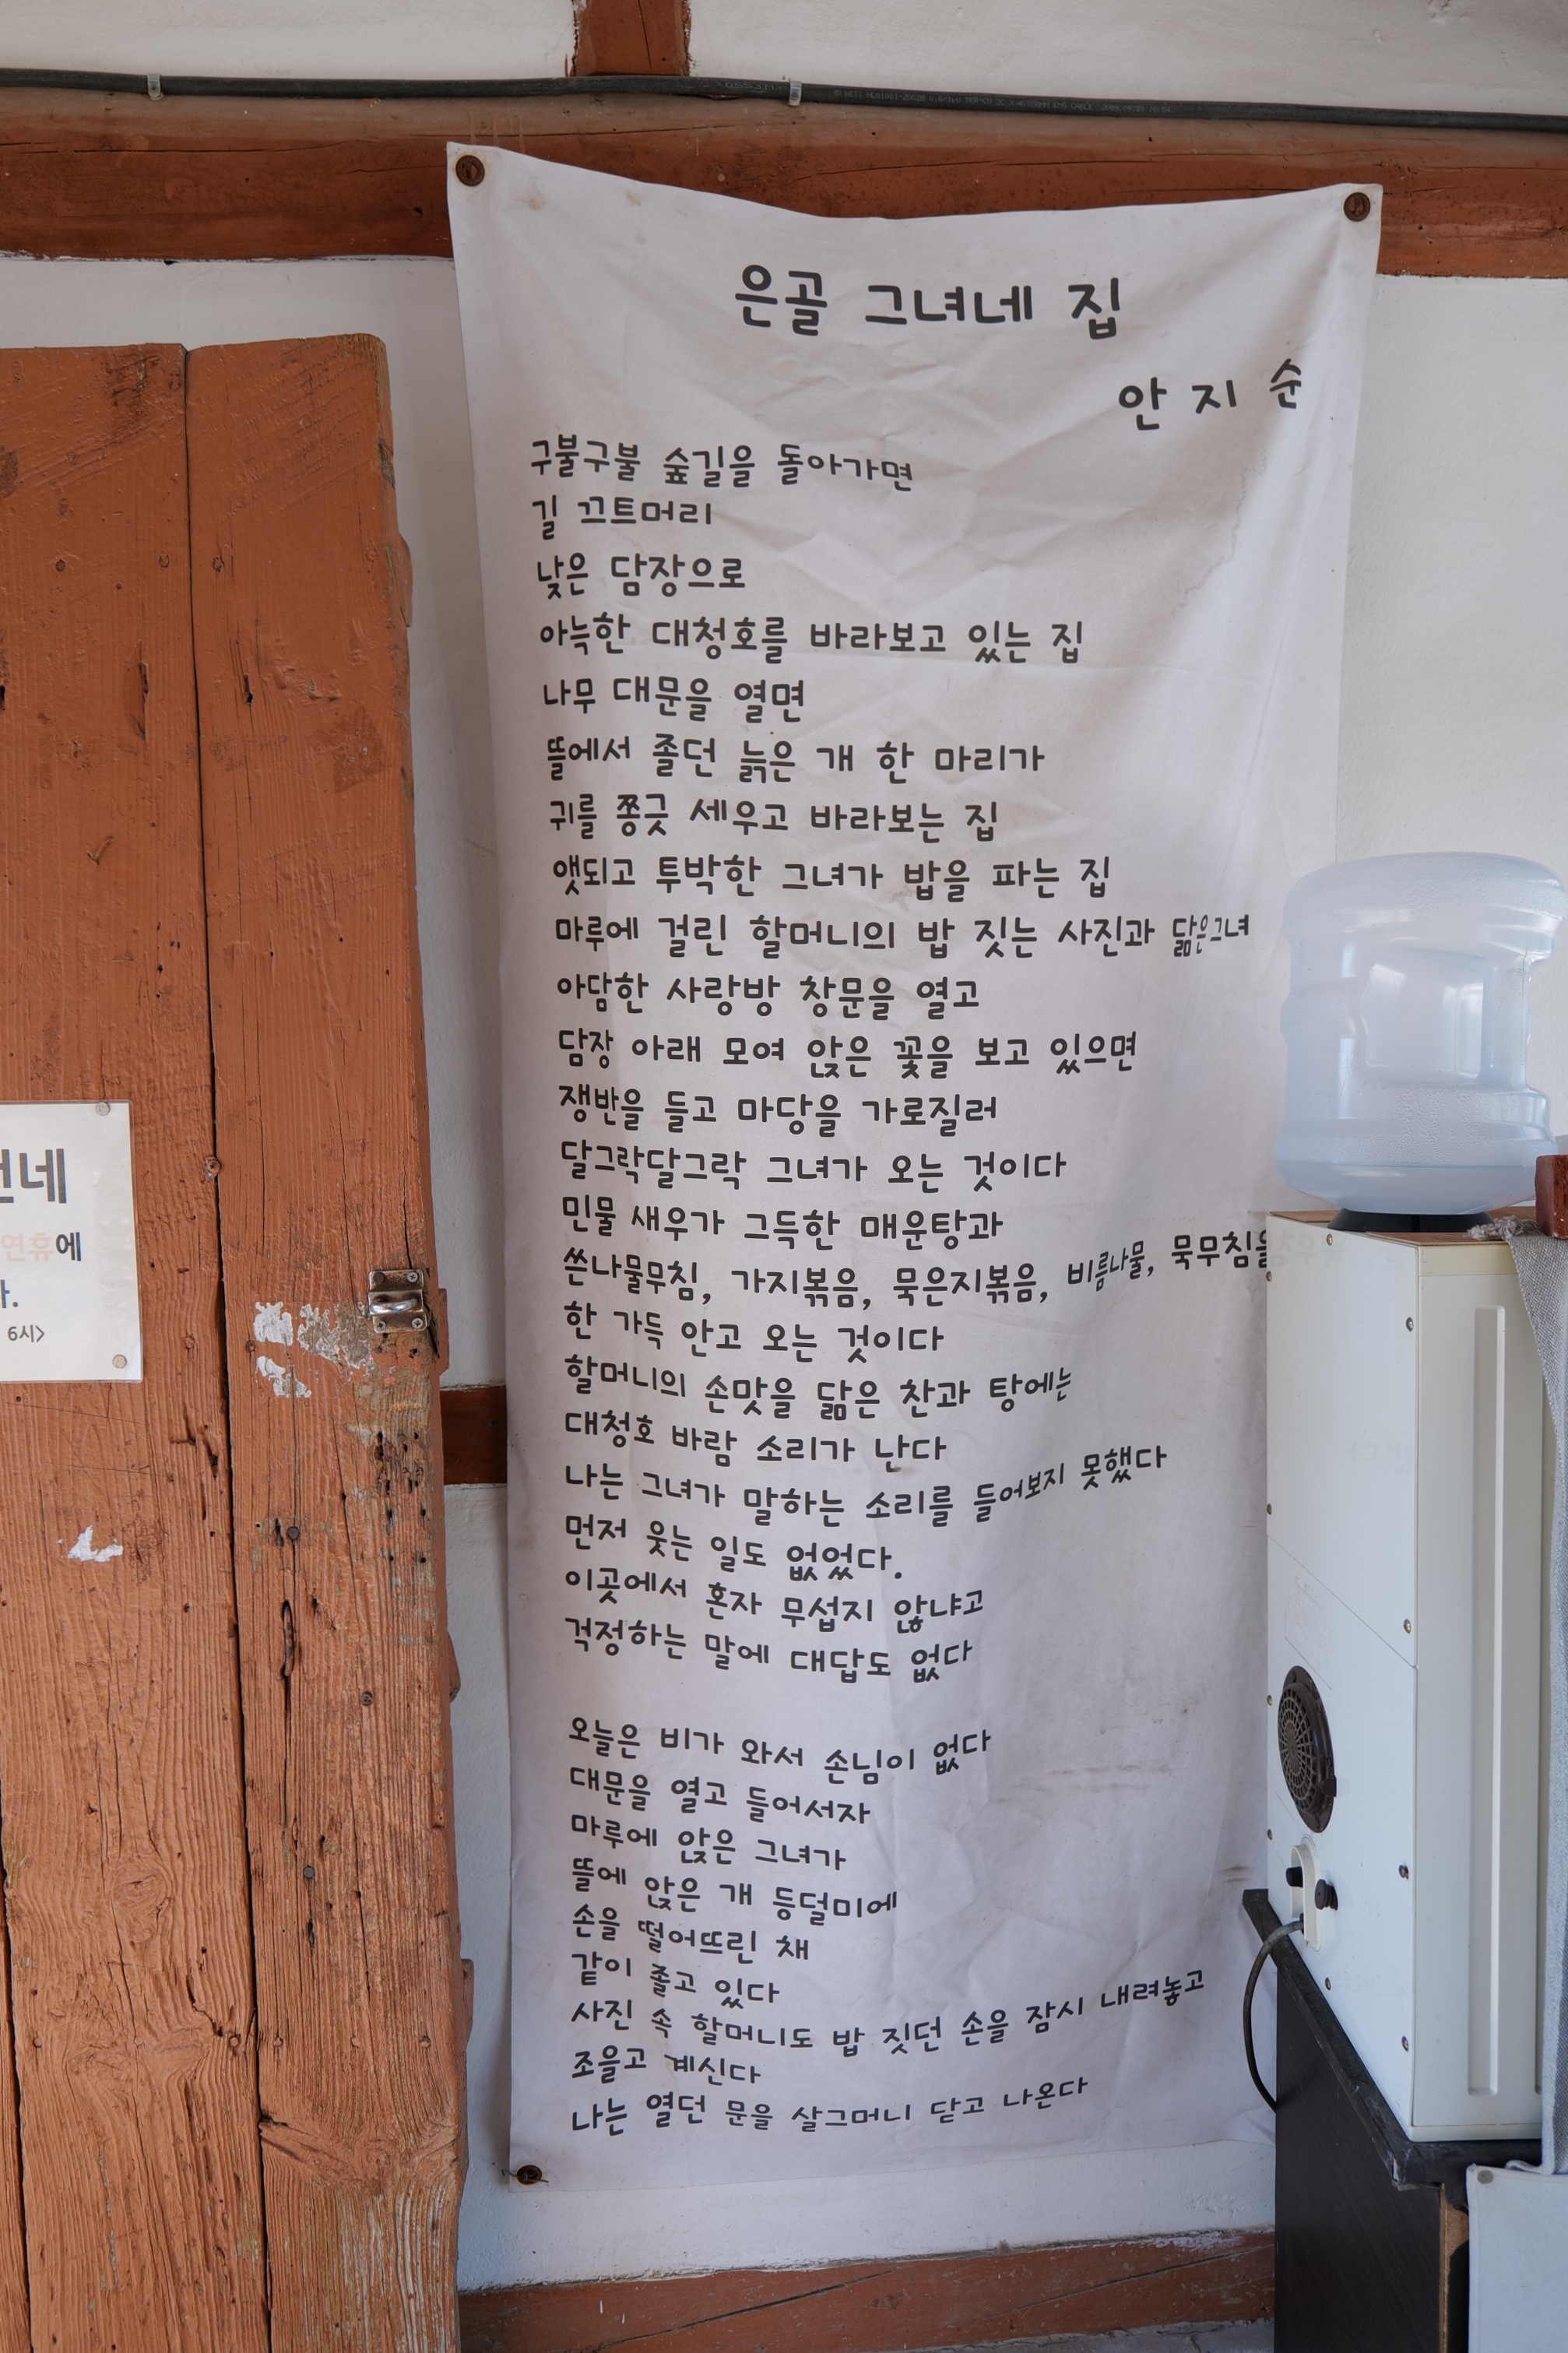 은골 그녀네 집
안 지 순
구불구불 숲길을 돌아가면
길 끄트머리
낮은 담장으로
아늑한 대청호를 바라보고 있는 집
나무 대문을 열면
뜰에서 졸던 늙은 개 한 마리가
귀를 쫑긋 세우고 바라보는 집
앳되고 투박한 그녀가 밥을 파는 집
마루에 걸린 할머니의 밥 짓는 사진과 닮은그녀
아담한 사랑방 창문을 열고
담장 아래 모여 앉은 꽃을 보고 있으면
쟁반을 들고 마당을 가로질러
달그락달그락 그녀가 오는 것이다
민물 새우가 그득한 매운탕과
쓴나물무침, 가지볶음, 묵은지볶음, 비름나물, 묵무침을
한 가득 안고 오는 것이다
할머니의 손맛을 닮은 찬과 탕에는
대청호 바람 소리가 난다
나는 그녀가 말하는 소리를 들어보지 못했다
먼저 웃는 일도 없었다.
이곳에서 혼자 무섭지 않냐고
걱정하는 말에 대답도 없다
오늘은 비가 와서 손님이 없다
대문을 열고 들어서자
마루에 앉은 그녀가
뜰에 앉은 개 등덜미에
손을 떨어뜨린 채
같이 졸고 있다
사진 속 할머니도 밥 짓던 손을 잠시 내려놓고
조을고 계신다
나는 열던 문을 살그머니 닫고 나온다
네
연휴에
6시>